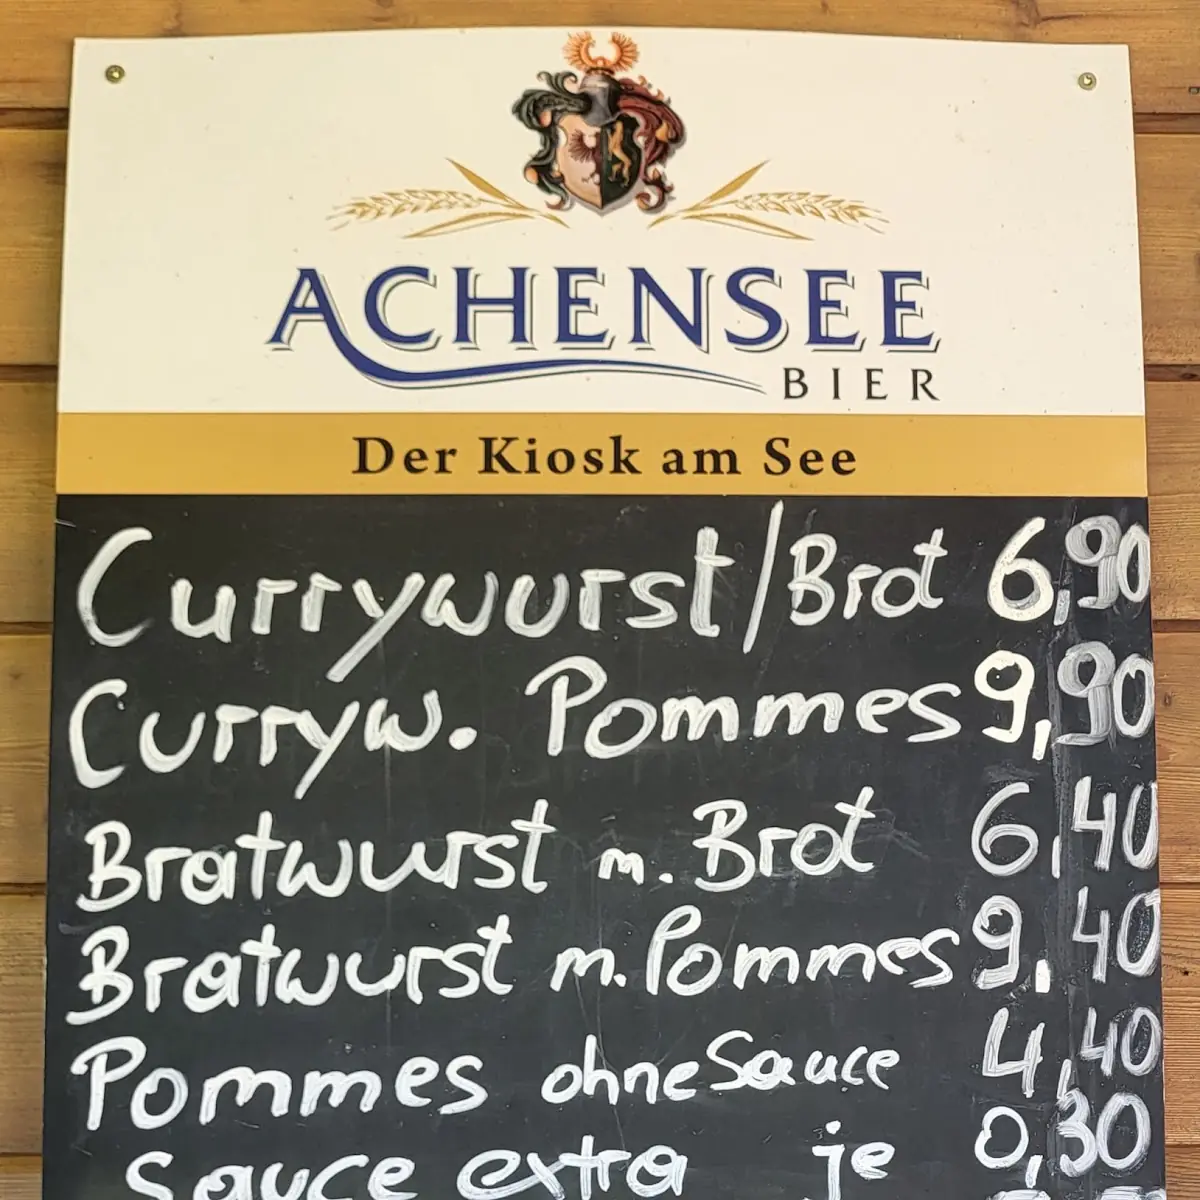 ACHENSEE
BIER
Der Kiosk am See
Currywurst/Brot 6,90
Curryw. Pommes 9,90
Bratwurst m. Brot 6,40
Bratwurst m. Pommes 9,40
Pommes ohne Sauce 4,40
Sauce extra je 0,30